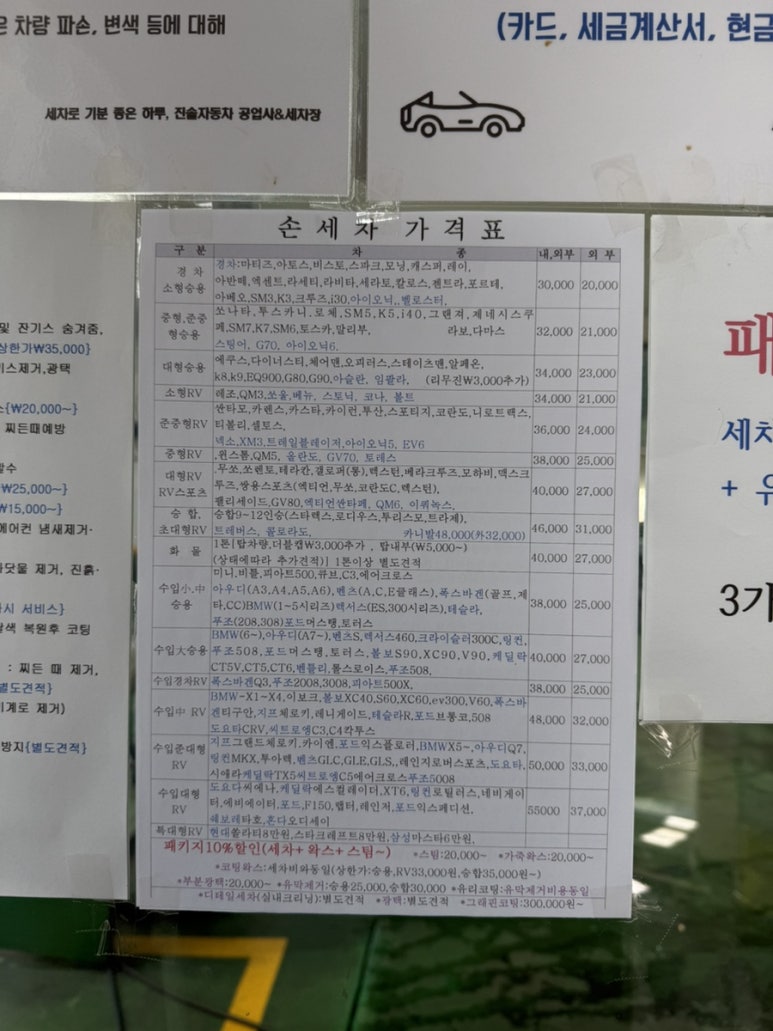 은 차량 파손, 변색 등에 대해
세차로 기분 좋은 하루, 진솔자동차 공업사&세차장
(카드, 세금계산서, 현금
및 잔기스 숨겨줌,
상한가₩35,000}
기스제거,광택
스{₩20,000~}
찌든때예방
할수
₩25,000~}
₩15,000~}
에어컨 냄새제거-
바닷물 제거, 진흙-
시 서비스}
색 복원후 코팅
: 찌든 때 제거,
별도견적}
기계로 제거)
방지{별도견적}
손 세 차 가 격 표
구 분 차 종 내,외부 외 부
경 차 소형승용 30,000 20,000
경차:마티즈,아토스,비스토,스파크,모닝,캐스퍼,레이,
아반떼,엑센트,라세티,라비타,세라토,칼로스,젠트라,포르테,
아베오,SM3,K3,크루즈,i30,아이오닉,,벨로스터,
중형,준중형승용 32,000 21,000
쏘나타,투스카니,로체,SM5,K5,i40,그랜져,제네시스쿠
페,SM7,K7,SM6,토스카,말리부, 라보,다마스
스팅어, G70, 아이오닉6.
대형승용 34,000 23,000
에쿠스,다이너스티,체어맨,오피러스,스테이츠맨,알페온,
k8,k9,EQ900,G80,G90,아슬란, 임팔라, (리무진₩3,000추가)
소형RV 레조,QM3,쏘울,베뉴, 스토닉, 코나, 볼트 34,000 21,000
준중형RV 36,000 24,000
싼타모,카렌스,카스타,카이런,투산,스포티지,코란도,니로트랙스,
티볼리,셀토스,
넥소,XM3,트레일블레이저,아이오닉5, EV6
중형RV ,윈스톰,QM5, 올란도, GV70, 토레스 38,000 25,000
대형RV RV스포츠 40,000 27,000
,무쏘,쏘렌토,테라칸,갤로퍼(롱),렉스턴,베라크루즈,모하비,맥스크
루즈,쌍용스포츠(엑티언,무쏘,코란도C,렉스턴),
펠리세이드,GV80,엑티언싼타페, QM6, 이쿼녹스,
승 합, 초대형RV 46,000 31,000
승합9~12인승(스타렉스,로디우스,투리스모,트라제),
트레버스, 콜로라도, 카니발48,000(外32,000)
화 물 40,000 27,000
1톤[탑차량,더블캡₩3,000추가 , 탑내부(₩5,000~)
(상태에따라 추가견적)] 1톤이상 별도견적
수입小.中 승용 38,000 25,000
미니,비틀,피아트500,큐브,C3,에어크로스
아우디(A3,A4,A5,A6),벤츠(A,C,E클래스),폭스바겐(골프,제
타,CC)BMW(1~5시리즈)렉서스(ES,300시리즈),테슬라,
푸조(208,308)포드머스탱,토러스
수입大승용 40,000 27,000
BMW(6~),아우디(A7~),벤츠S,렉서스460,크라이슬러300C,링컨,
푸조508,포드머스탱,토러스,볼보S90,XC90,V90,케딜락
CT5V,CT5,CT6,벤틀리,롤스로이스,푸조508,
수입경차RV 폭스바겐Q3,푸조2008,3008,피아트500X, 38,000 25,000
수입中 RV 48,000 32,000
BMW-X1~X4,이보크,볼보XC40,S60,XC60,ev300,V60,폭스바
겐티구안,지프체로키,레니게이드,테슬라R,포드브롱코,508
도요타CRV,씨트로엥C3,C4칵투스
수입준대형 RV 50,000 33,000
지프그랜드체로키,카이엔,포드익스플로러,BMWX5~,아우디Q7,
링컨MKX,투아렉,벤츠GLC,GLE,GLS,,레인지로버스포츠,도요타,
시에라케딜락TX5씨트로엥C5에어크로스푸조5008
수입대형 RV 55000 37,000
도요다씨에나,케딜락에스컬레이더,XT6,링컨로틸러스,네비게이
터,에비에이터,포드,F150,랩터,레인저,포드익스페디션,
쉐보레타호,혼다오디세이
특대형RV 현대쏠라티8만원,스타크레프트8만원,삼성마스타6만원,
패키지10%할인(세차+ 왁스+ 스팀~) *스팀:20,000~ *가죽왁스:20,000~
*코팅왁스:세차비와동일(상한가:승용,RV33,000원,승합35,000원~)
*부분광택:20,000~ *유막제거:승용25,000,승합30,000 *유리코팅:유막제거비용동일
*디테일세차(실내크리닝):별도견적 *광택:별도견적 *그래핀코팅:300,000원~
패
세차
+ 유
3가